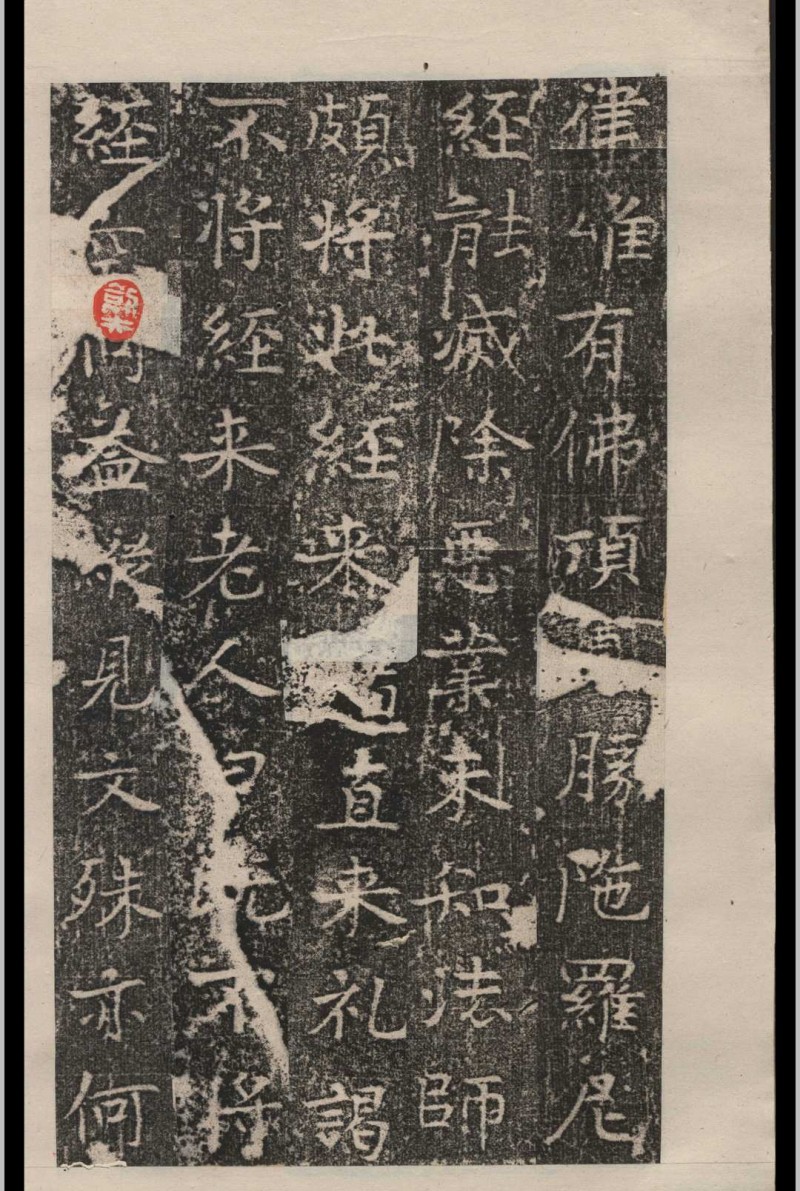 律唯有佛頂勝陁羅尼
經能滅除惡業未知法師
頗將此經来道直来礼謁
不將經来老人曰既不將
經何益縱見文殊亦何